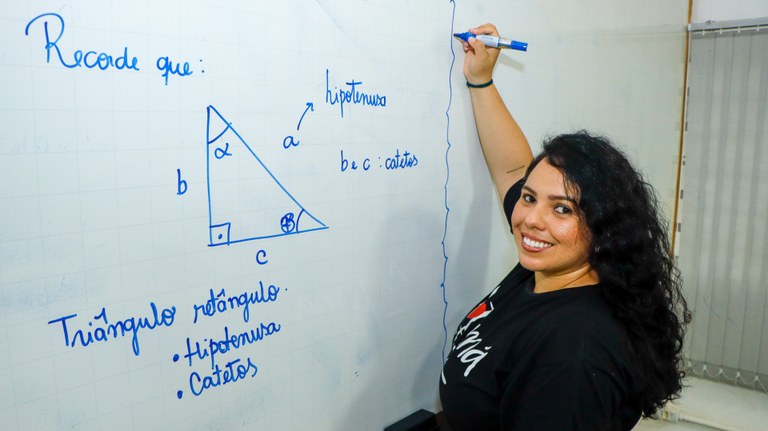 Recorde que:
α
a
hipotenusa
b
b e c : catetos
β
c
Triângulo retângulo.
• Hipotenusa
• Catetos